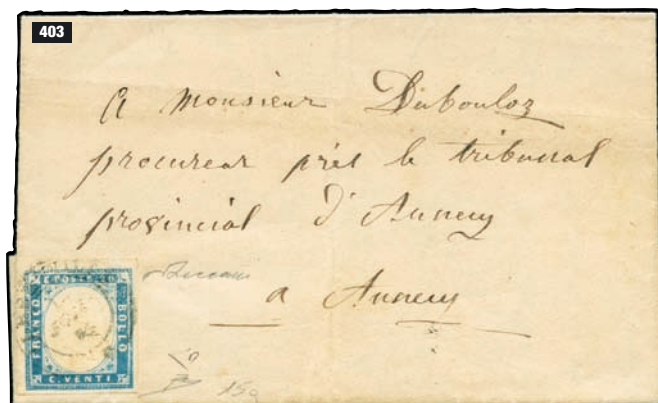 403
A Monsieur Dubouloz
procureur près le tribunal
provincial d'Annecy
a Annecy
C. POSTE 20
FRANCO
BOLLO
C. VENTI
150